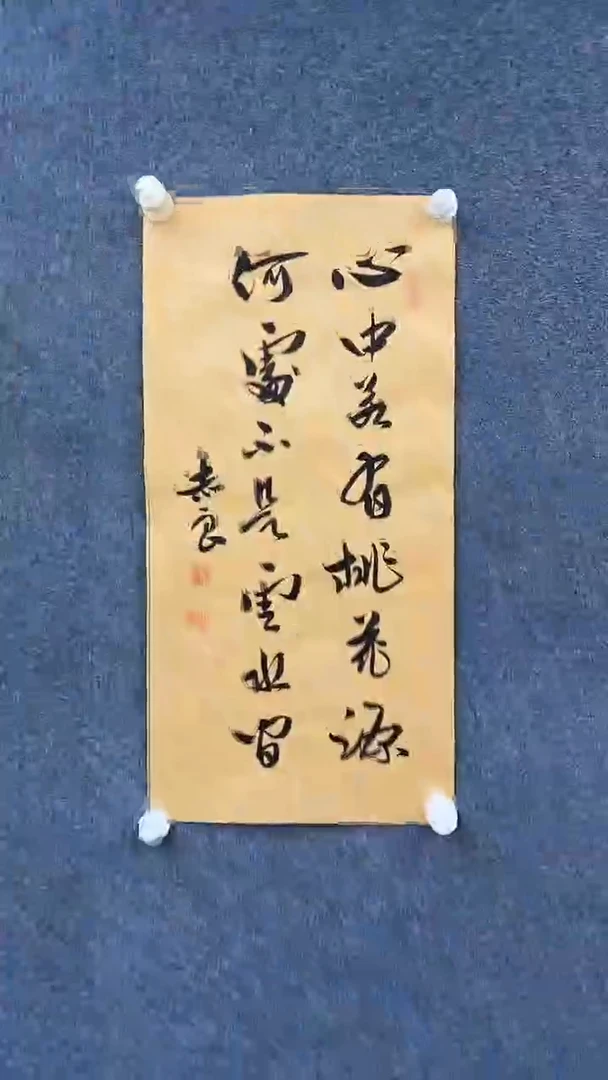 心中若有桃花源
何處不是雲水間